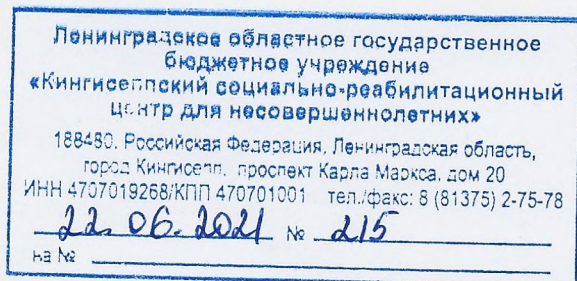 Ленинградское областное государственное
бюджетное учреждение
«Кингисеппский социально-реабилитационный
центр для несовершеннолетних»
188480, Российская Федерация, Ленинградская область,
город Кингисепп, проспект Карла Маркса, дом 20
ИНН 4707019268/КПП 470701001 тел./факс: 8 (81375) 2-75-78
22. 06. 2021 № 215
на №